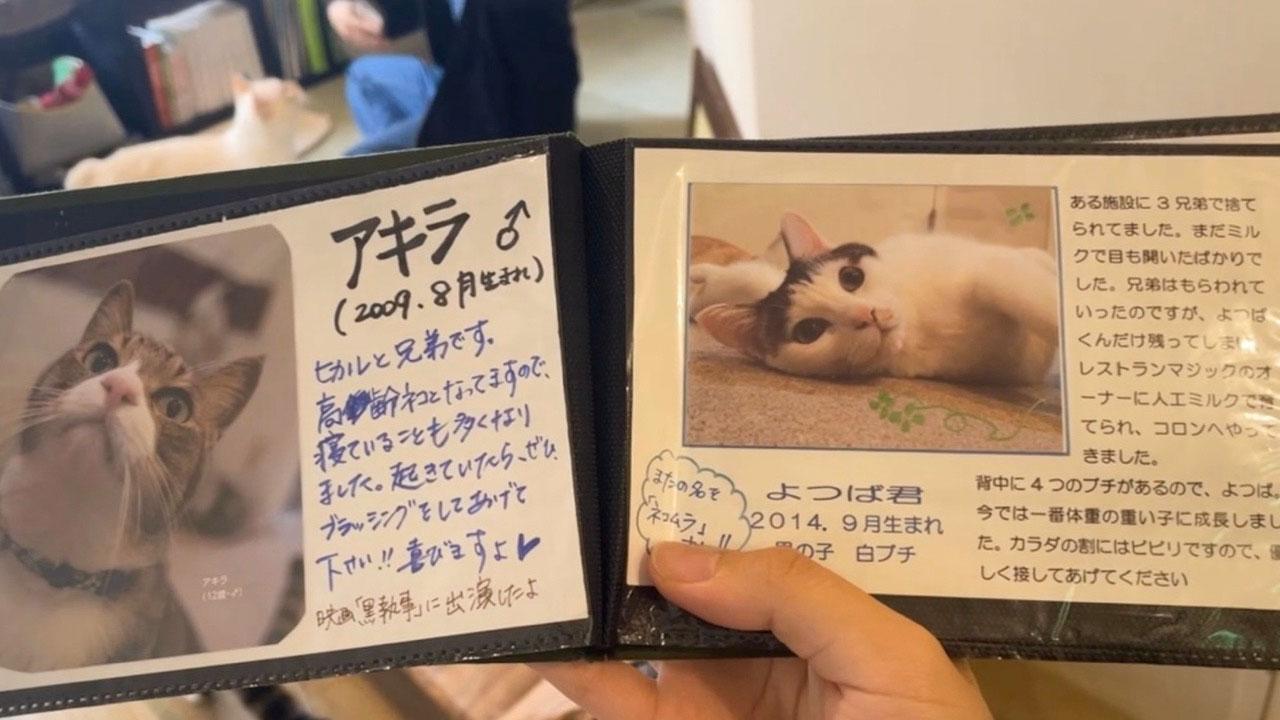 アキラ ♂
(2009.8月生まれ)
ヒカルと兄弟です。
高齢ネコとなってますので、
寝ていることも多くなり
ました。起きていたら、ぜひ、
ブラッシングをしてあげて
下さい!!喜びますよ♥
映画「黒執事」に出演したよ
アキラ
(12歳・♂)
ある施設に3兄弟で捨て
られてました。まだミル
クで目も開いたばかりで
した。兄弟はもらわれて
いったのですが、よつば
くんだけ残ってしまい
レストランマジックのオ
ーナーに人工ミルクで育
てられ、コロンへやって
きました。
またの名を
「ネコムラ」
よつば君
2014.9月生まれ
の子 白ブチ
背中に4つのブチがあるので、よつば。
今では一番体重の重い子に成長しまし
た。カラダの割にはビビリですので、優
しく接してあげてください